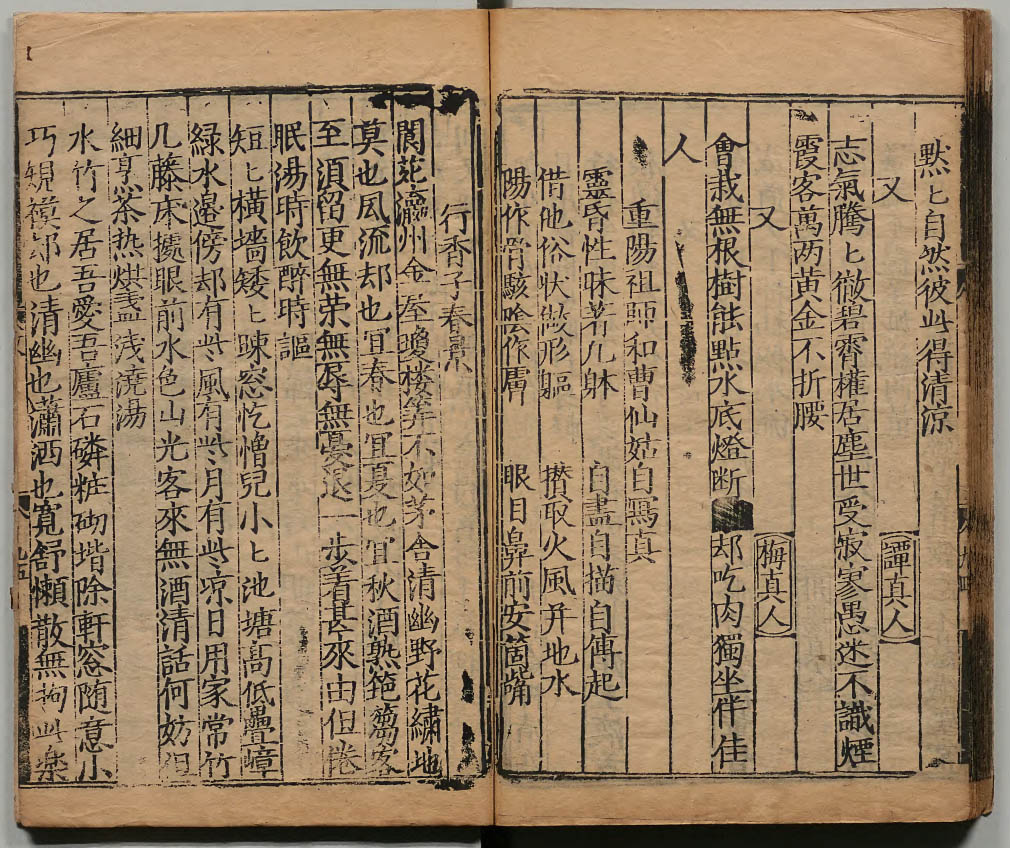 默〻自然彼此得清凉
又 譚真人
志氣騰〻徹碧霄權居塵世受寂寥愚迷不識煙
霞客萬两黄金不折腰
又 梅真人
會栽無根樹能點水底燈断 却吃肉獨坐伴佳
人
重陽祖師和曹仙姑自寫真
靈昏性昧著凢躰 自畫自描自傳起
借他俗状做形軀 攅取火風并地水
陽作骨骸陰作膚 眼目鼻前安箇觜
行香子春景
閬苑瀛州金 瓊楼筭不如茅舎清幽野花繡地
莫也風流却也冝春也冝夏也冝秋酒熟篘客
至須留更無荣無辱無憂退一步着甚来由但倦
眠湯時飲醉時謳
短〻横墻矮〻踈窓忔憎児小〻池塘髙低疊嶂
緑水邉傍却有些風有些月有些凉日用家常竹
几藤床㨿眼前水色山光客來無酒清話何妨但
細烹茶热烘盞浅澆湯
水竹之居吾愛吾廬石磷粧砌堦除軒窓随意小
巧規模却也清幽也瀟洒也寛舒懶散無拘此楽
九五